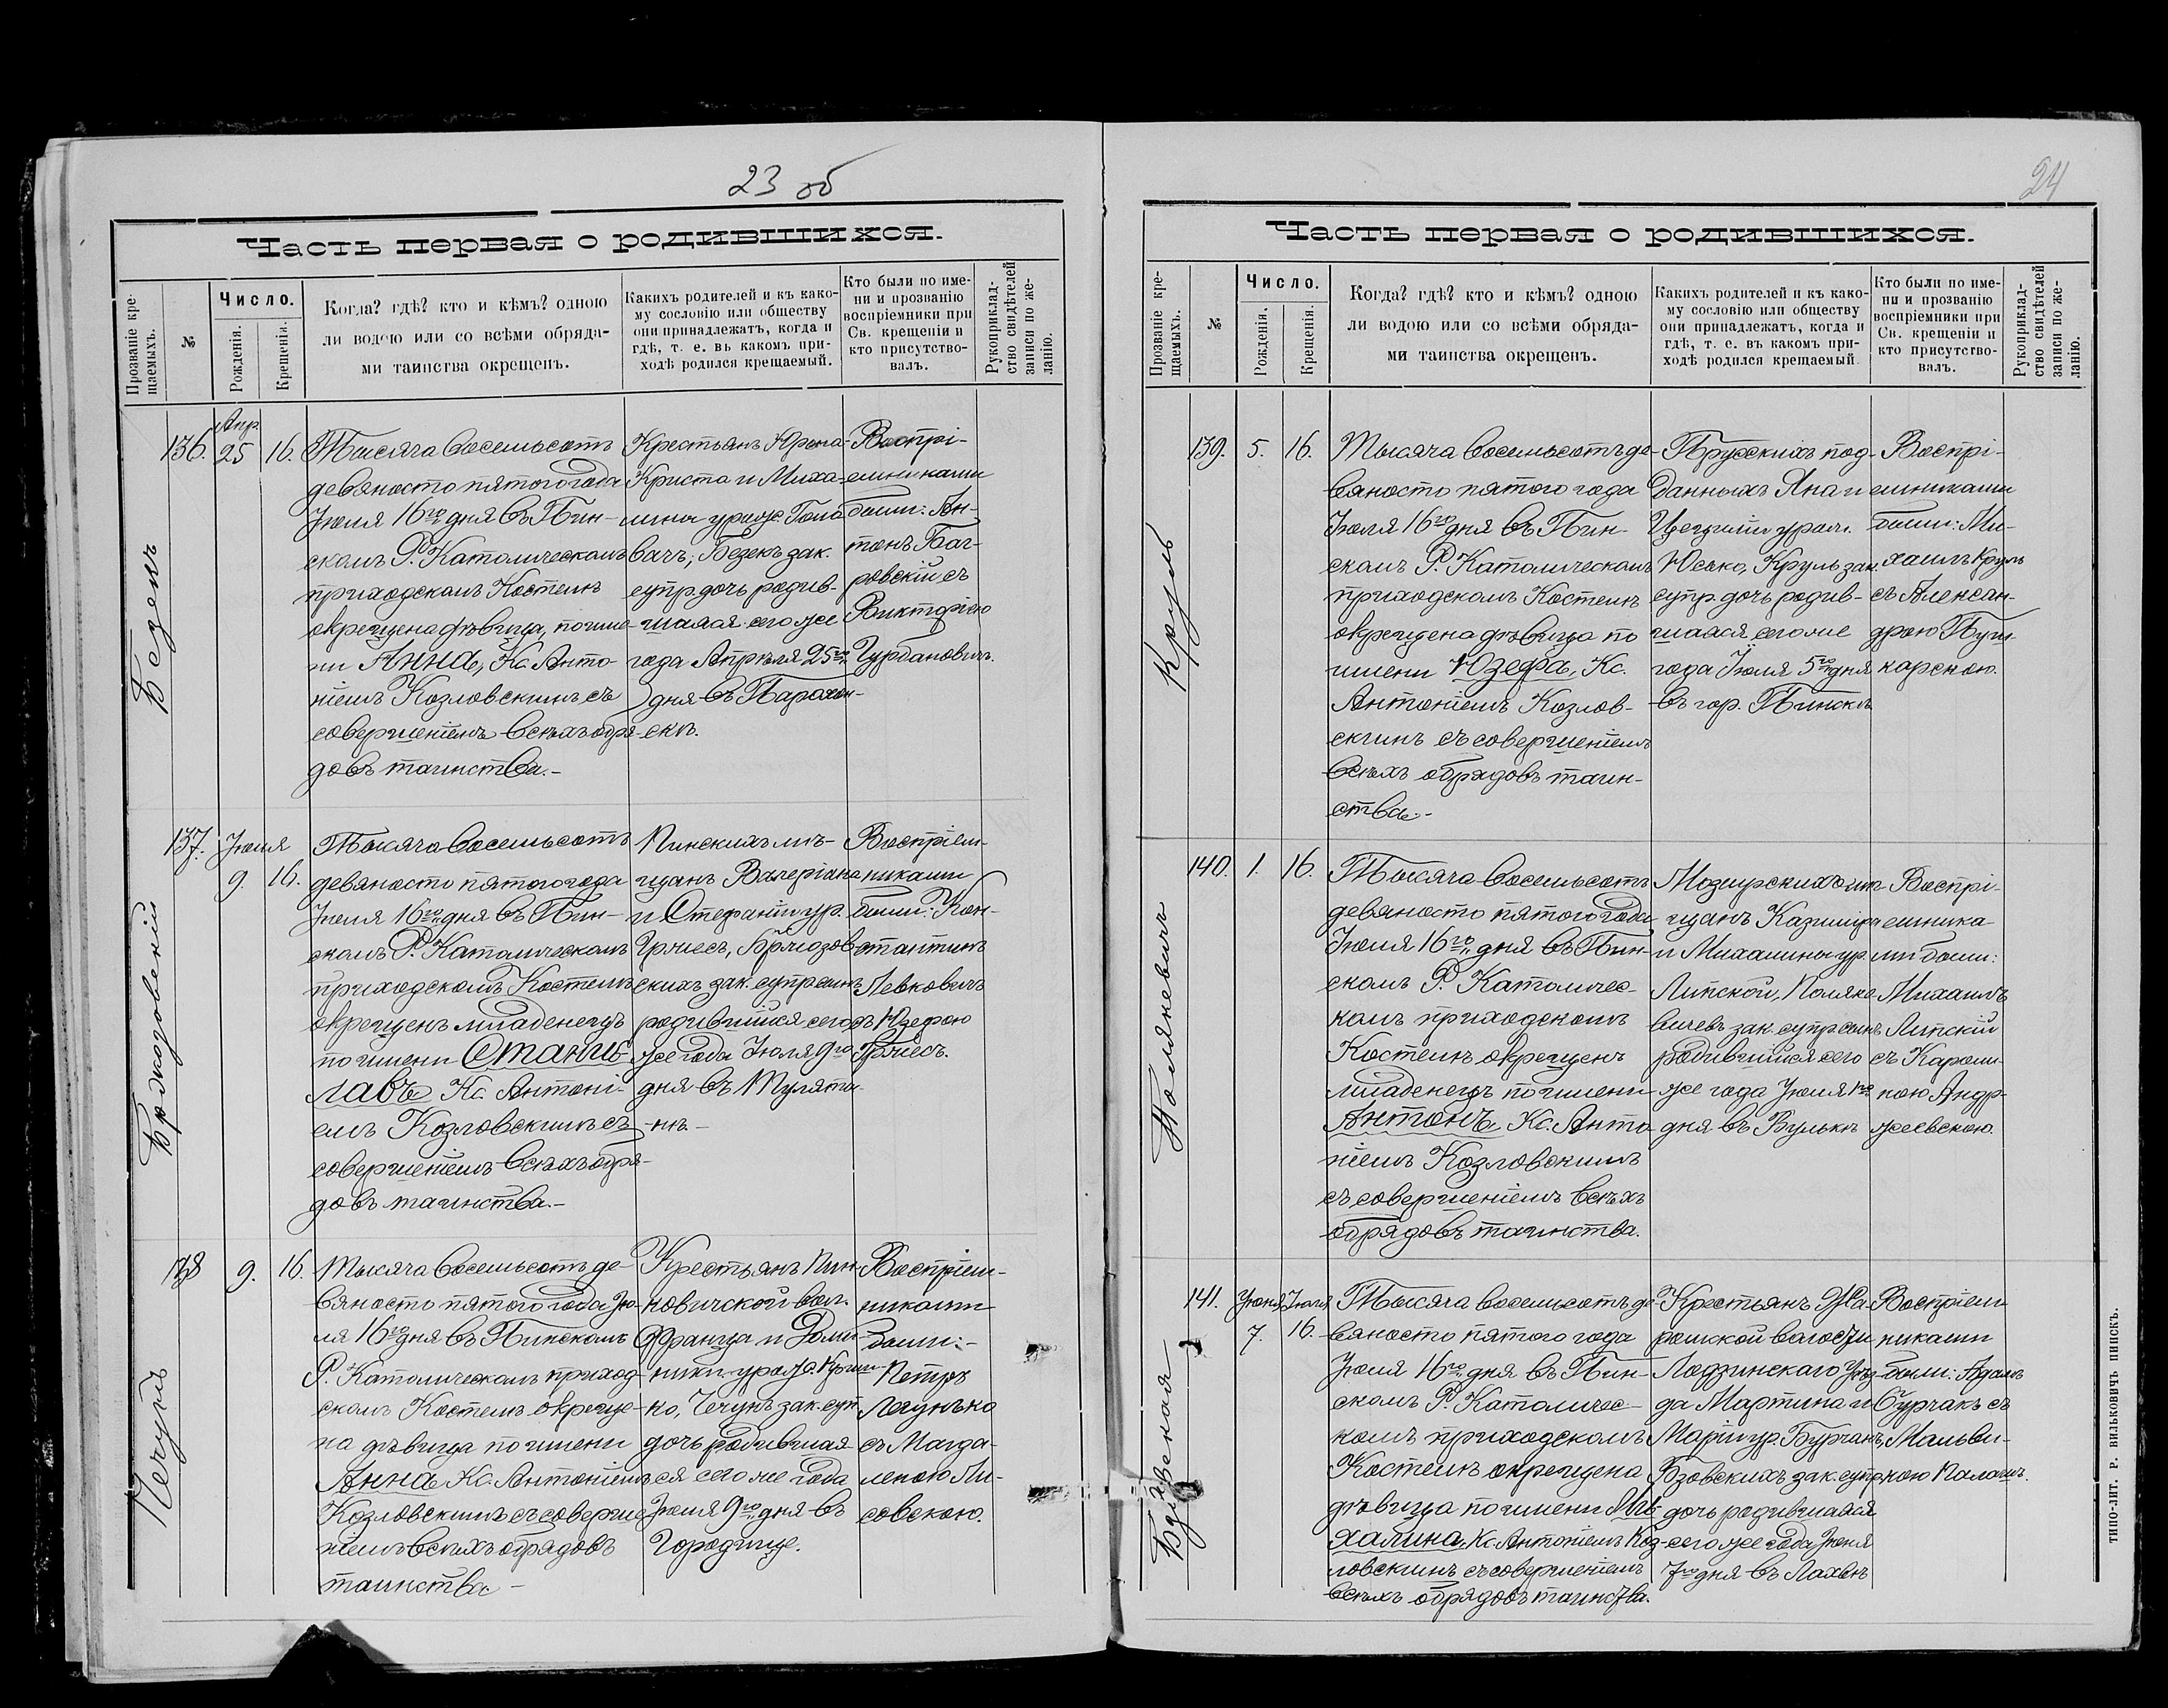 23 об
Часть первая о родившихся.
Прозваніе кре-
щаемыхъ.
№
Число.
Рожденія.
Крещенія.
Когда? гдѣ? кто и кѣмъ? одною
ли водою или со всѣми обряда-
ми таинства окрещенъ.
Какихъ родителей и къ како-
му сословію или обществу
они принадлежатъ, когда и
гдѣ, т. е. въ какомъ при-
ходѣ родился крещаемый.
Кто были по име-
ни и прозванію
воспріемники при
Св. крещеніи и
кто присутство-
валъ.
Рукоприклад-
ство свидѣтелей
записи по же-
ланію.
Безенъ
136.
Апр.
25
16.
Тысяча восемьсотъ
девяносто пятого года
Іюля 16го дня въ Пин-
скомъ Р. Католическомъ
приходскомъ Костелѣ
окрещена дѣвица, по име-
ни Анна, Кс. Анто-
ніемъ Козловскимъ съ
совершеніемъ всѣхъ обря-
довъ таинства.-
Крестьянъ
Криста и Миха-
лины урож.
вачъ, Безенъ зак.
супр. дочь родив-
шаяся сего же
года Апрѣля 25го
дня въ Парохон-
скѣ.
Воспрі-
емниками
были: Ан-
тонъ Баг-
ровскій съ
Викторіею
Гурбановичъ.
Бржозовскій
137.
Іюля
9.
16.
Тысяча восемьсотъ
девяносто пятого года
Іюля 16го дня въ Пин-
скомъ Р. Католическомъ
приходскомъ Костелѣ
окрещенъ младенецъ
по имени Станис-
лавъ Кс. Антоні-
емъ Козловскимъ съ
совершеніемъ всѣхъ обря-
довъ таинства.-
Пинскихъ мѣ-
щанъ Валеріана
и Стефаніи ур.
Гржесъ, Бржозов-
скихъ зак. супр. сынъ
родившійся сего
же года Іюля 9го
дня въ Мулята-
нѣ.-
Воспріем-
никами
были: Кон-
стантинъ
Левковичъ
съ Юзефою
Гржесъ.
Чечунъ
138
9.
16.
Тысяча восемьсотъ де-
вяносто пятого года Ію-
ля 16го дня въ Пинскомъ
Р. Католическомъ приход-
скомъ Костелѣ окреще-
на дѣвица по имени
Анна Кс. Антоніемъ
Козловскимъ съ соверше-
ніемъ всѣхъ обрядовъ
таинства -
Крестьянъ Пин-
ковичской вол.
Франца и Доми-
ники урож.
ко, Чечунъ зак. суп.
дочь родившая-
ся сего же года
Іюля 9го дня въ
Городище.
Воспріем-
никами
были:-
Петръ
Логунько
съ Магда-
леною Ли-
совскою.
24
Часть первая о родившихся.
Прозваніе кре-
щаемыхъ.
№
Число.
Рожденія.
Крещенія.
Когда? гдѣ? кто и кѣмъ? одною
ли водою или со всѣми обряда-
ми таинства окрещенъ.
Какихъ родителей и къ како-
му сословію или обществу
они принадлежатъ, когда и
гдѣ, т. е. въ какомъ при-
ходѣ родился крещаемый
Кто были по име-
ни и прозванію
воспріемники при
Св. крещеніи и
кто присутство-
валъ.
Рукоприклад-
ство свидѣтелей
записи по же-
ланію.
Круль
139.
5.
16.
Тысяча восемьсотъ де-
вяносто пятого года
Іюля 16го дня въ Пин-
скомъ Р. Католическомъ
приходскомъ Костелѣ
окрещена дѣвица по
имени Юзефа, Кс.
Антоніемъ Козлов-
скимъ съ совершеніемъ
всѣхъ обрядовъ таин-
ства.-
Прусскихъ под-
данныхъ Яна и
Цециліи урож.
Юсько, Круль зак.
супр. дочь родив-
шаяся сего же
года Іюля 5го дня
въ гор. Пинскѣ
Воспрі-
емниками
были: Ми-
хаилъ Круль
съ Алексан-
дрою Пуш-
карскою.
Поляневичъ
140.
1.
16.
Тысяча восемьсотъ
девяносто пятого года
Іюля 16го дня въ Пин-
скомъ Р. Католичес-
комъ приходскомъ
Костелѣ окрещенъ
младенецъ по имени
Антонъ Кс. Анто-
ніемъ Козловскимъ
съ совершеніемъ всѣхъ
обрядовъ таинства.
Мозырскихъ мѣ-
щанъ Казиміра
и Михалины ур.
Липской, Поляне-
вичевъ зак. супр. сынъ
родившійся сего
же года Іюля 1го
дня въ Вулькѣ
Воспрі-
емника-
ми были:
Михаилъ
Липскій
съ Кароли-
ною Андр-
жеевскою.
141.
Іюня
7.
Іюля
16.
Тысяча восемьсотъ де-
вяносто пятого года
Іюля 16го дня въ Пин-
скомъ Р. Католичес-
комъ приходскомъ
Костелѣ окрещена
дѣвица по имени Ми-
халина, Кс. Антоніемъ Коз-
ловскимъ съ совершеніемъ
всѣхъ обрядовъ таинства.
Крестьянъ
волости
Лодзинскаго Уѣз-
да Мартина и
Маріи ур. Бурчакъ,
зак. супр.
дочь родившаяся
сего же года Іюня
7го дня въ Лахвѣ
Воспріем-
никами
были: Адамъ
Бурчакъ съ
Мальви-
ною Палачъ.
ТИПО-ЛИТ. Р. ВИЛЬКОВИЧЪ ПИНСКЪ.